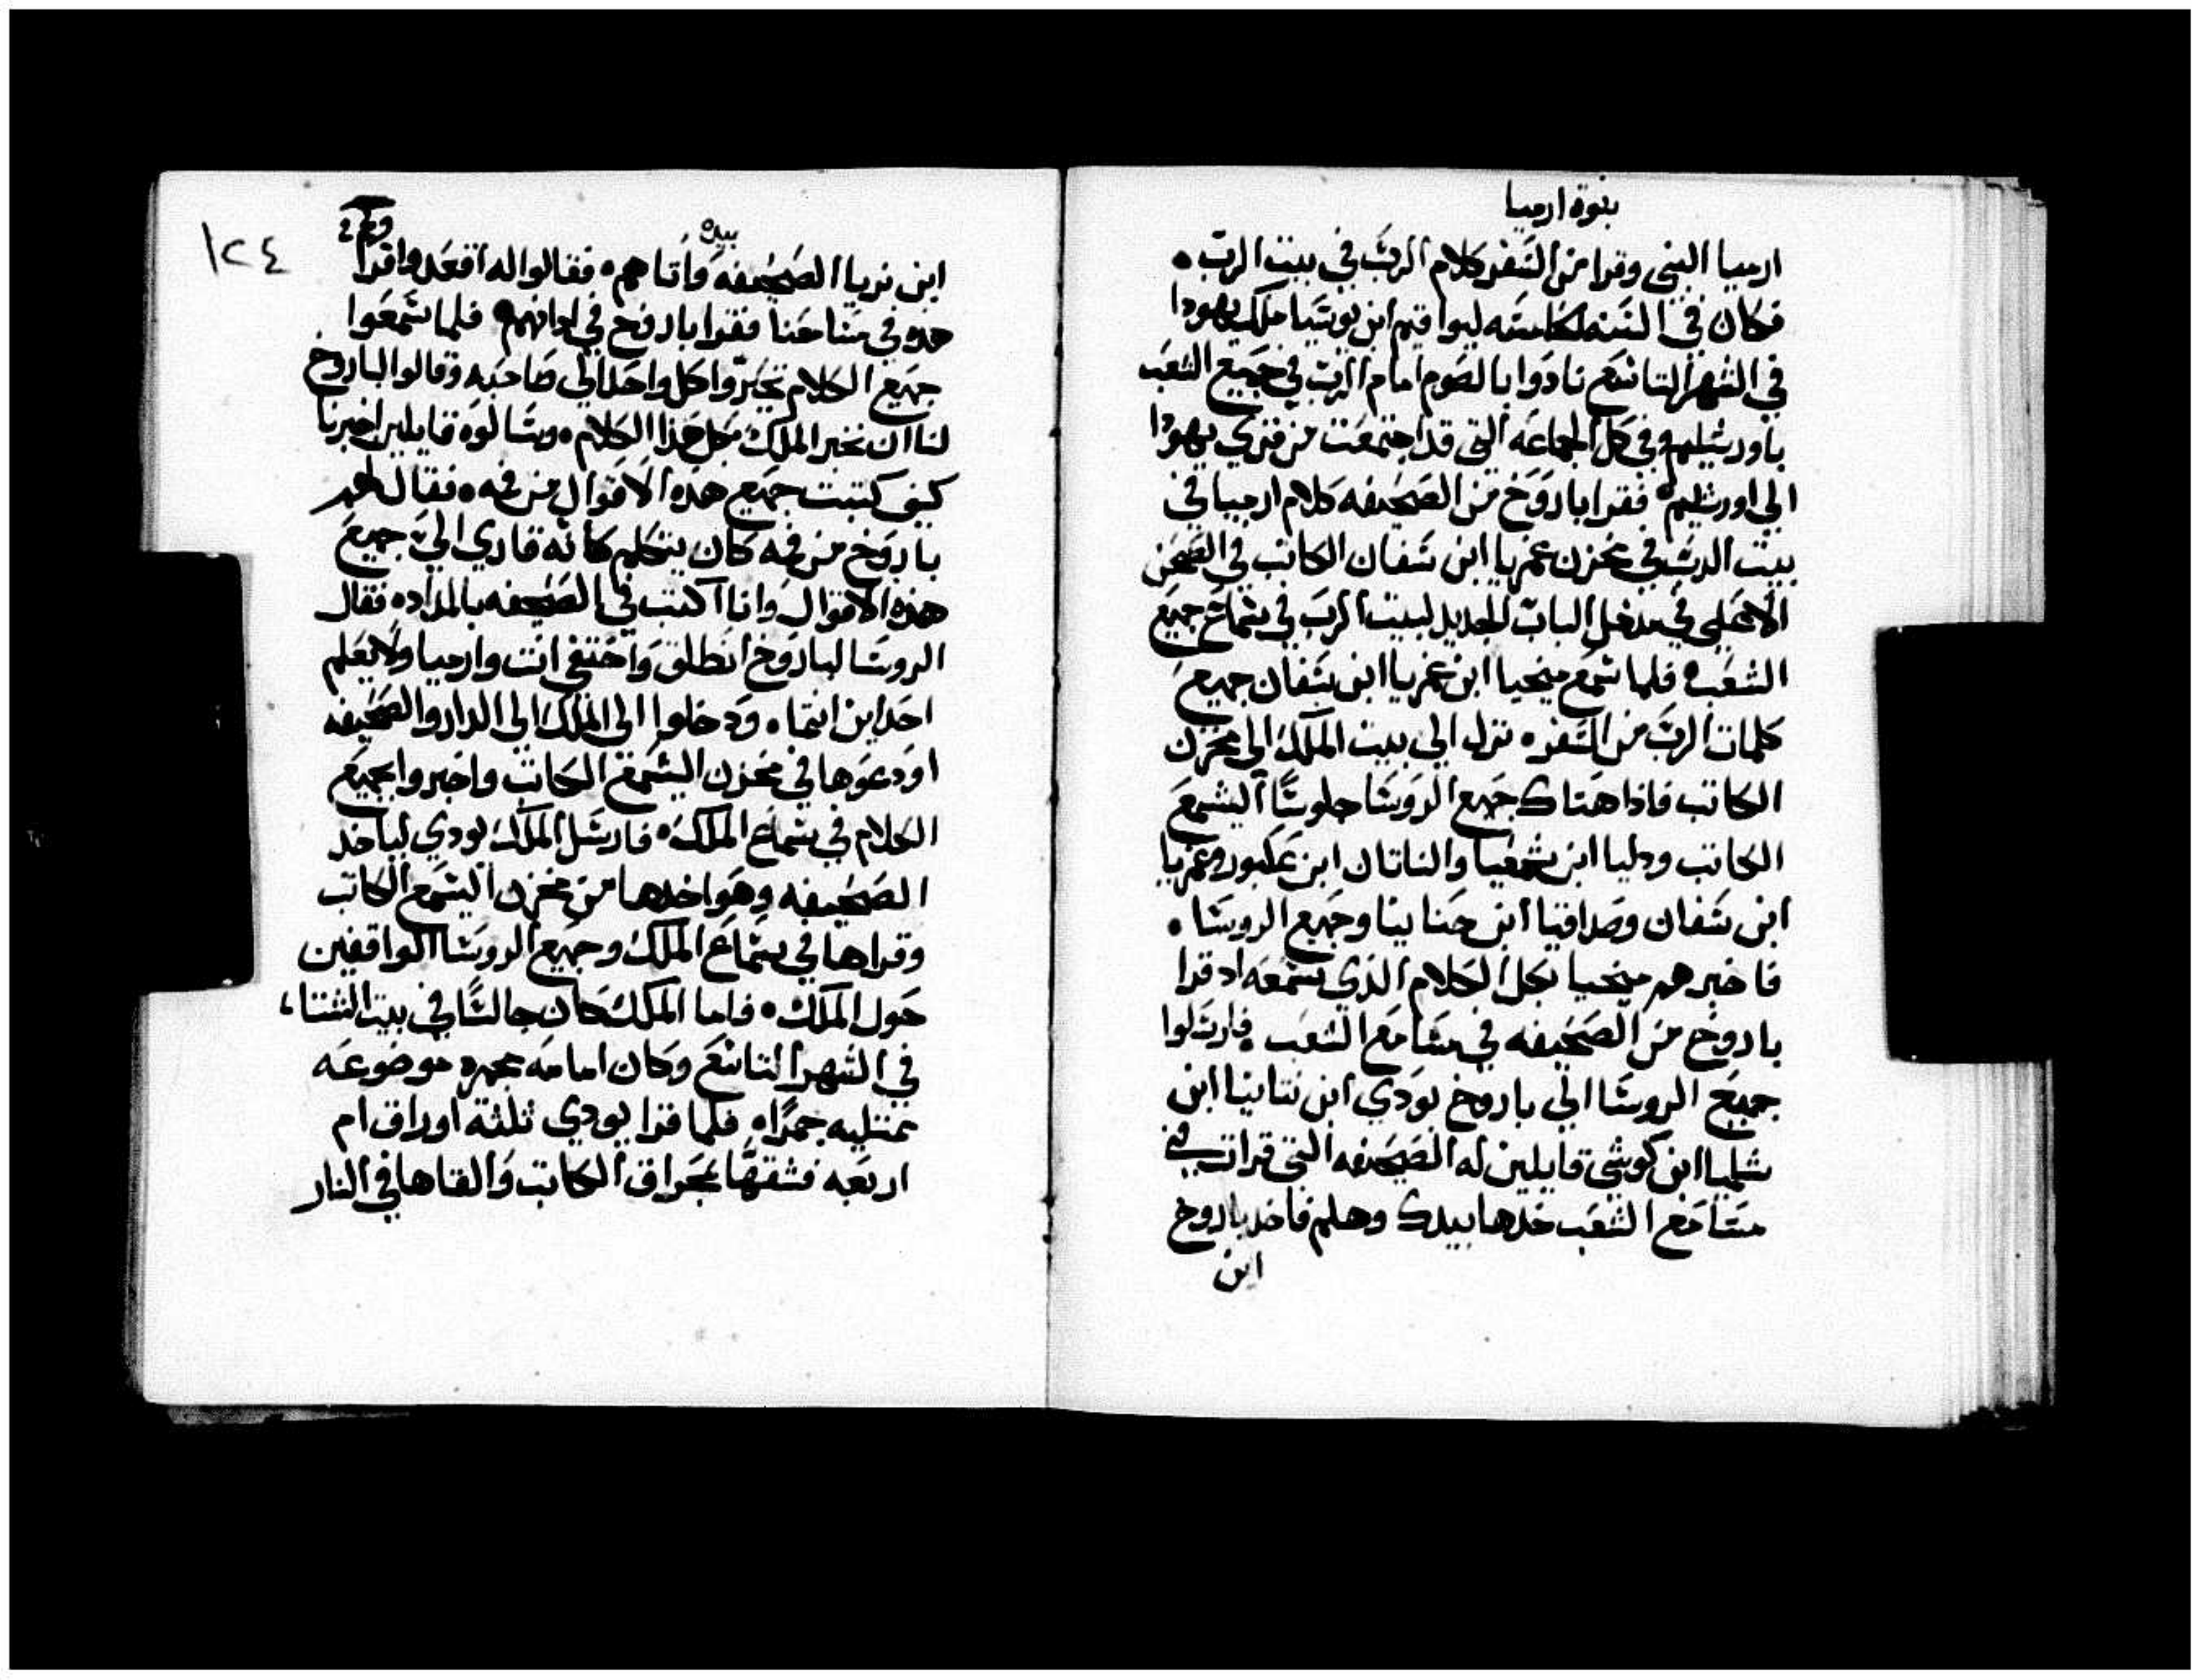 نبوة ارميا
ارميا النبي وقرا من السفر كلام الرب في بيت الرب •
فكان في السنه الخامسه ليواقيم ابن يوشيا ملك يهودا
في الشهر التاسع نادوا بالصوم امام الرب في جميع الشعب
باورشليم وفي كل الجماعه التي قد اجتمعت من قري يهودا
الي اورشليم • فقرا باروخ من الصحيفه كلام ارميا في
بيت الرب في مخزن عمريا ابن شفان الكاتب في الصحن
الاعلي في مدخل الباب الجديد لبيت الرب في سماع جميع
الشعب • فلما سمع ميخيا ابن عمريا ابن شفان جميع
كلمات الرب من السفر • نزل الي بيت الملك الي مخزن
الكاتب فاذا هناك جميع الروسا جلوسًا اليشمع
الكاتب ودليا ابن شمعيا والناتان ابن عكبور وعمريا
ابن شفان وصداقيا ابن حنانيا وجميع الروسا •
فاخبرهم ميخيا بكل الكلام الذي سمعه اد قرا
باروخ من الصحيفه في مسامع الشعب • فارسلوا
جميع الروسا الي باروخ يودي ابن نتانيا ابن
شلميا ابن كوشي قايلين له الصحيفه التي قرات في
مسامع الشعب خدها بيدك وهلم فاخد باروخ
ابن
١٢٤
بيده
ابن نريا الصحيفه واتاهم • فقالوا له اقعد واقرا
هده في مسامعنا فقرا باروخ في ادانهم • فلما سمعوا
جميع الكلام تحيروا كل واحد الي صاحبه وقالوا لباروخ
لنا ان نخبر الملك بكل هذا الكلام • وسالوه قايلين اخبرنا
كيف كتبت جميع هده الاقوال من فمه • فقال لهم
باروخ من فمه كان يتكلم كانه قاري الي جميع
هذه الاقوال وانا اكتب في الصحيفه بالمداد • فقال
الروسا لباروخ انطلق واختفي انت وارميا ولا يعلم
احد اين انتما • ودخلوا الي الملك الي الدار والصحيفه
اودعوها في مخزن اليشمع الكاتب واخبروا بجميع
الكلام في سماع الملك • فارسل الملك يودي لياخد
الصحيفه وهو اخدها من مخزن اليشمع الكاتب
وقراها في سماع الملك وجميع الروسا الواقفين
حول الملك • فاما الملك كان جالسًا في بيت الشتا،
في الشهر التاسع وكان امامه مجمره موضوعه
ممتليه جمرًا • فلما قرا يودي ثلثة اوراق ام
اربعه فشقها بمحراق الكاتب والقاها في النار